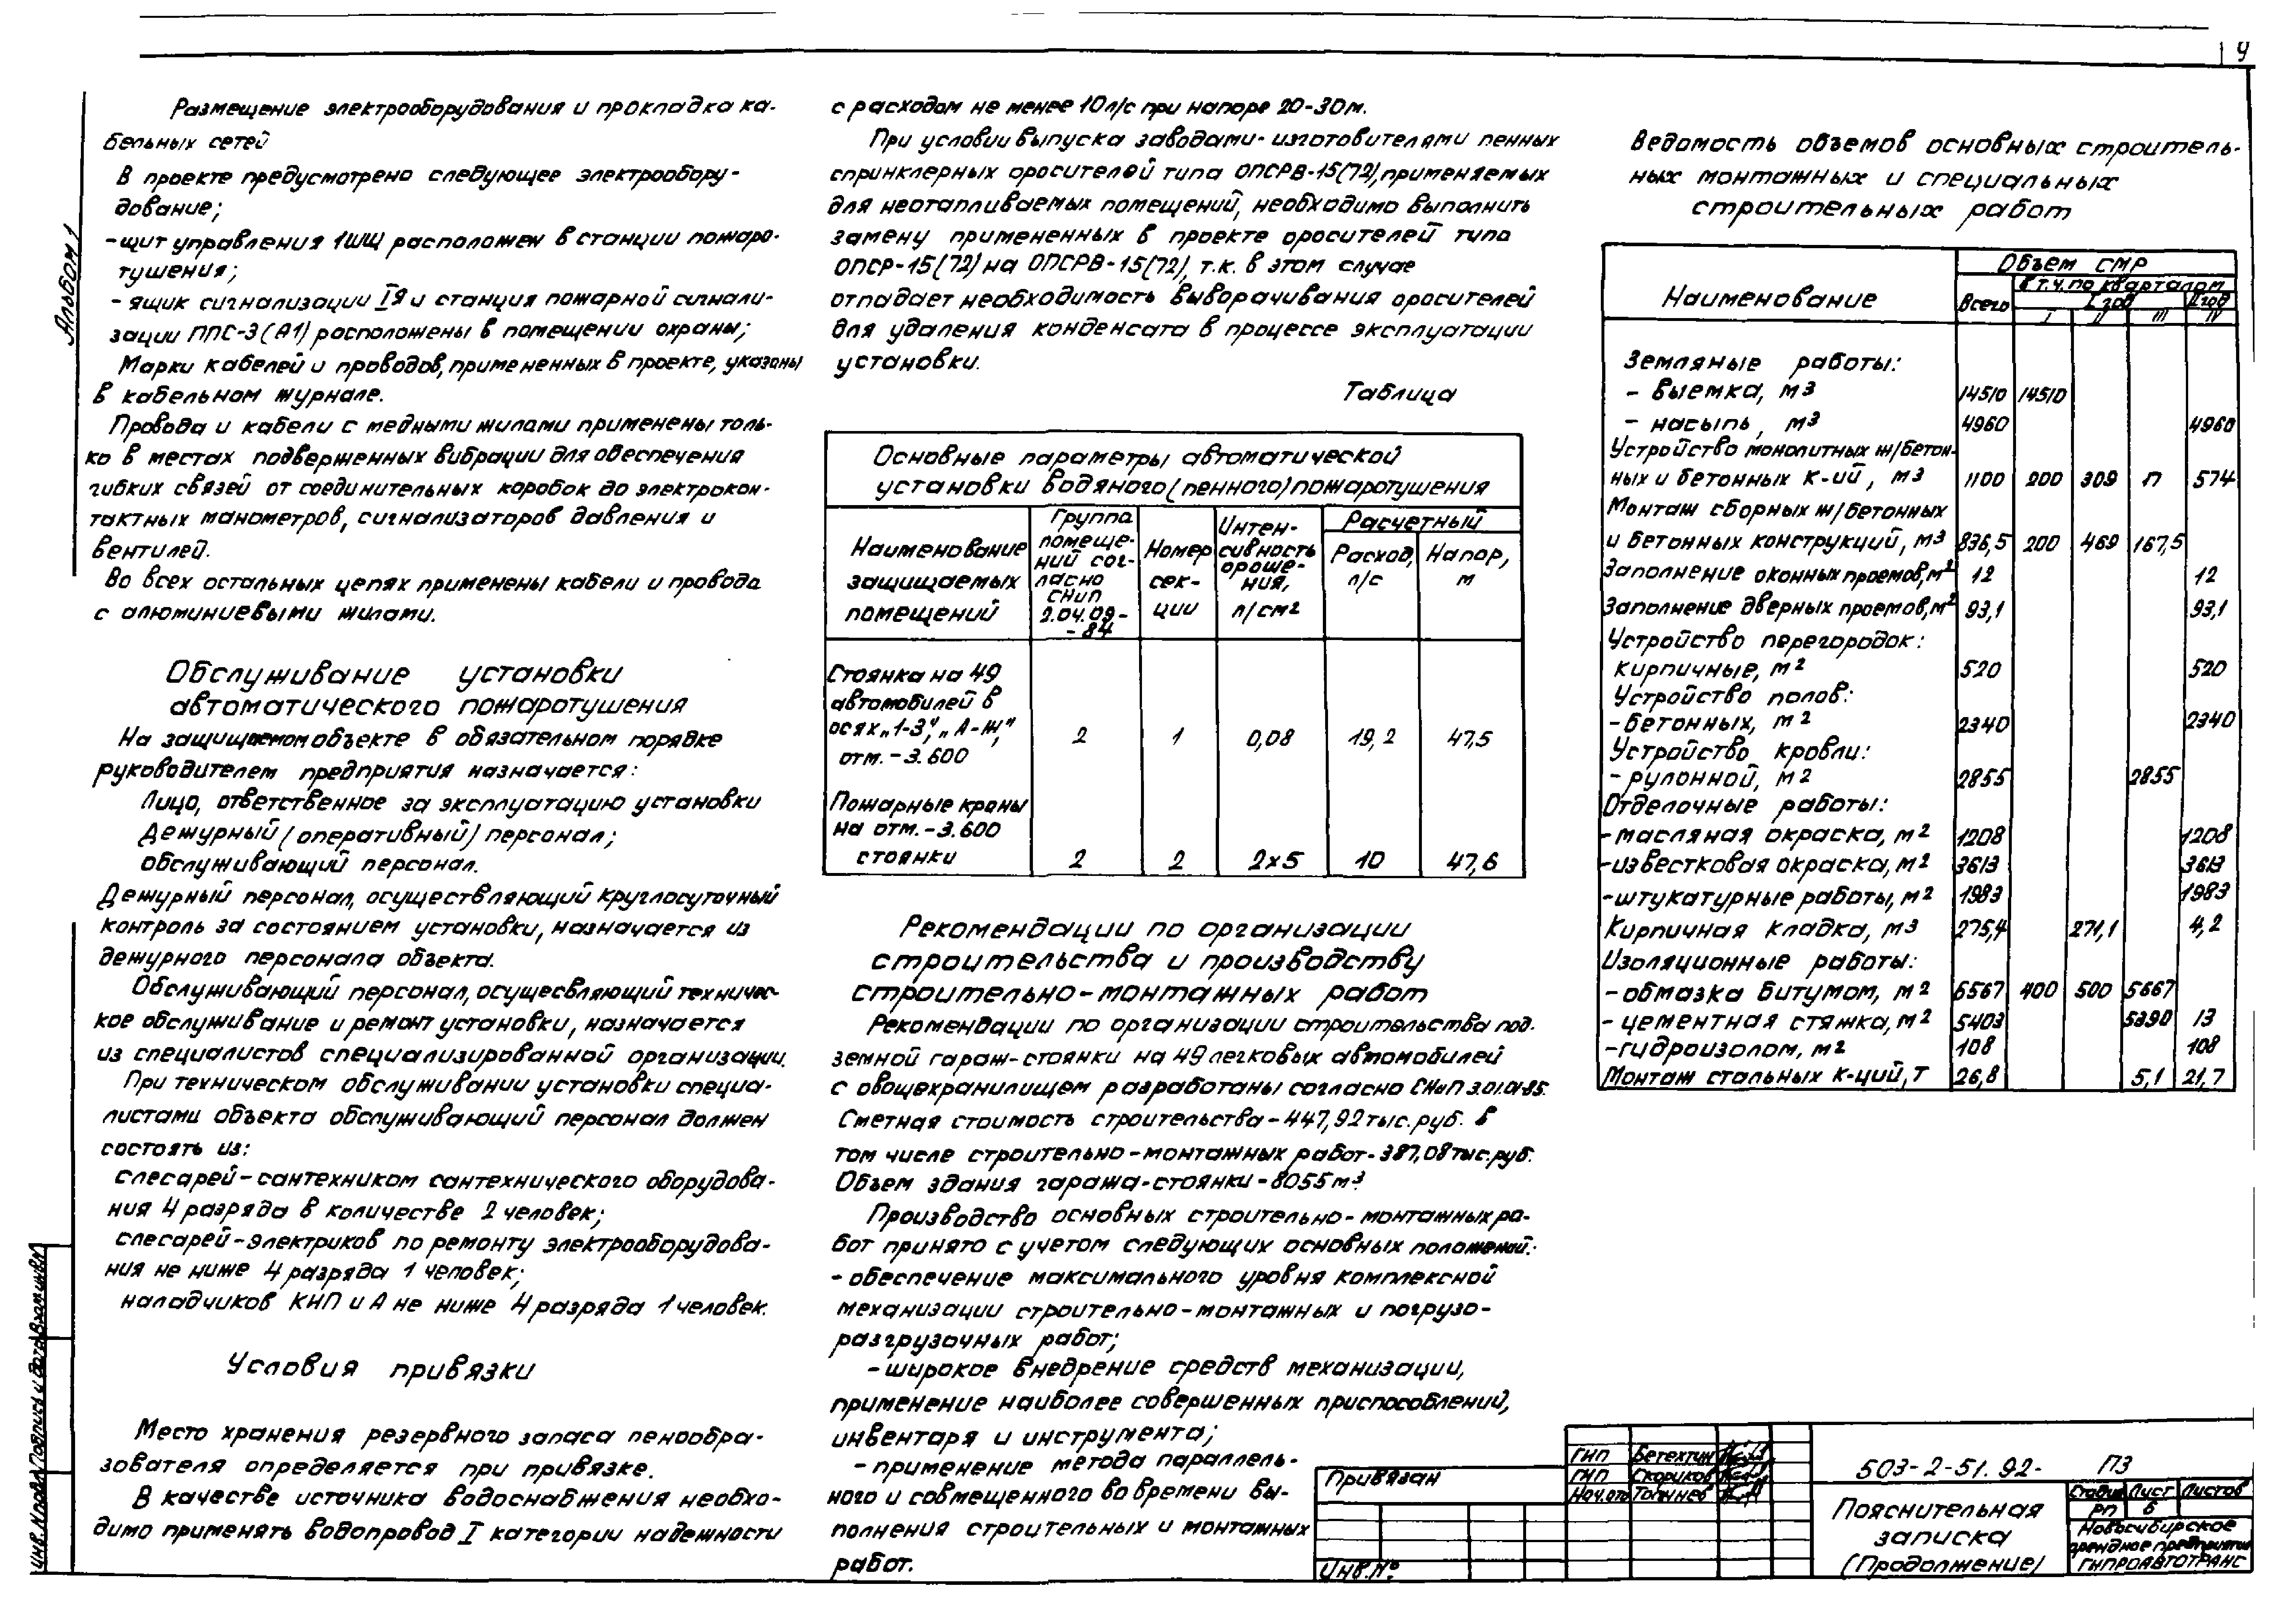 9
Альбом 1
Размещение электрооборудования и прокладка ка-
бельных сетей
В проекте предусмотрено следующее электрообору-
дование;
-щит управления 1ШЩ расположен в станции пожаро-
тушения;
- ящик сигнализации 1Я и станция пожарной сигнали-
зации ППС-3 (А1) расположены в помещении охраны;
Марки кабелей и проводов, примененных в проекте, указаны
в кабельном журнале.
Провода и кабели с медными жилами применены толь-
ко в местах подверженных вибрации для обеспечения
гибких связей от соединительных коробок до электрокон-
тактных манометров, сигнализаторов давления и
вентилей.
Во всех остальных цепях применены кабели и провода
с алюминиевыми жилами.
Обслуживание установки
автоматического пожаротушения
На защищаемом объекте в обязательном порядке
руководителем предприятия назначается:
Лицо, ответственное за эксплуатацию установки
Дежурный (оперативный) персонал;
обслуживающий персонал.
Дежурный персонал, осуществляющий круглосуточный
контроль за состоянием установки, назначается из
дежурного персонала объекта.
Обслуживающий персонал, осущесвляющий техничес-
кое обслуживание и ремонт установки, назначается
из специалистов специализированной организации.
При техническом обслуживании установки специа-
листами объекта обслуживающий персонал должен
состоять из:
слесарей-сантехником сантехнического оборудова-
ния 4 разряда в количестве 2 человек;
слесарей-электриков по ремонту электрооборудова-
ния не ниже 4 разряда 1 человек;
наладчиков КНП и А не ниже 4 разряда 1 человек.
Условия привязки
Место хранения резервного запаса пенообра-
зователя определяется при привязке.
В качестве источника водоснабжения необхо-
димо применять водопровод I категории надежности
с расходом не менее 10 л/с при напоре 20-30м.
При условии выпуска заводами-изготовителями пенных
спринклерных оросителей типа ОПСРВ-15(72), применяемых
для неотапливаемых помещений, необходимо выполнить
замену примененных в проекте оросителей типа
ОПСР-15(72) на ОПСРВ-15(72), т.к. в этом случае
отпадает необходимость выворачивания оросителей
для удаления конденсата в процессе эксплуатации
установки.
Таблица
Основные параметры автоматической
установки водяного (пенного) пожаротушения
Наименование защищаемых помещений | Группа помеще-ний сог-ласно СНиП 2.04.09--84 | Номер сек-ции | Интен-сивность ороше-ния, л/см2 | Расчетный | Расход, л/с | Напор, м
Стоянка на 49
автомобилей в
осях „1-3", „А-Ж",
отм. -3.600 2 1 0,08 19,2 47,5
Пожарные краны
на отм. -3.600
стоянки 2 2 2×5 10 47,6
Рекомендации по организации
строительства и производству
строительно-монтажных работ
Рекомендации по организации строительства под-
земной гараж-стоянки на 49 легковых автомобилей
с овощехранилищем разработаны согласно СНиП 3.01.01-85.
Сметная стоимость строительства - 447,92 тыс.руб. в
том числе строительно-монтажных работ - 387,08 тыс.руб.
Объем здания гаража-стоянки - 8055 м³
Производство основных строительно-монтажных ра-
бот принято с учетом следующих основных положений:
- обеспечение максимального уровня комплексной
механизации строительно-монтажных и погрузо-
разгрузочных работ;
- широкое внедрение средств механизации,
применение наиболее совершенных приспособлений,
инвентаря и инструмента;
- применение метода параллель-
ного и совмещенного во времени вы-
полнения строительных и монтажных
работ.
Ведомость объемов основных строитель-
ных монтажных и специальных
строительных работ
Наименование | Объем СМР
Всего | в т.ч. по кварталам
I год | II год
I II III IV
Земляные работы:
- выемка, м3 14510 14510
- насыпь, м3 4960 4960
Устройство монолитных ж/бетон-
ных и бетонных к-ий, м3 1100 200 309 17 574
Монтаж сборных ж/бетонных
и бетонных конструкций, м3 836,5 200 469 167,5
Заполнение оконных проемов, м2 12 12
Заполнение дверных проемов, м2 93,1 93,1
Устройство перегородок:
кирпичные, м2 520 520
Устройство полов:
-бетонных, м2 2340 2340
Устройство кровли:
- рулонной, м2 2855 2855
Отделочные работы:
-масляная окраска, м2 1208 1208
-известковая окраска, м2 3613 3613
-штукатурные работы, м2 1983 1983
Кирпичная кладка, м3 275,4 271,1 4,2
Изоляционные работы:
- обмазка битумом, м2 6567 400 500 5667
- цементная стяжка, м2 5403 5390 13
-гидроизолом, м2 108 108
Монтаж стальных к-ций, т 26,8 5,1 21,7
Привязан
Инв.№
ГИП Бетехтин
ГИП Скориков
Нач.отд
503-2-51.92- ПЗ
Пояснительная
записка
(Продолжение)
Стадия Лист Листов
РП 6
Новосибирское
арендное предприятие
ГИПРОАВТОТРАНС
Инв.№подл. Подпись и дата Взам.инв.№